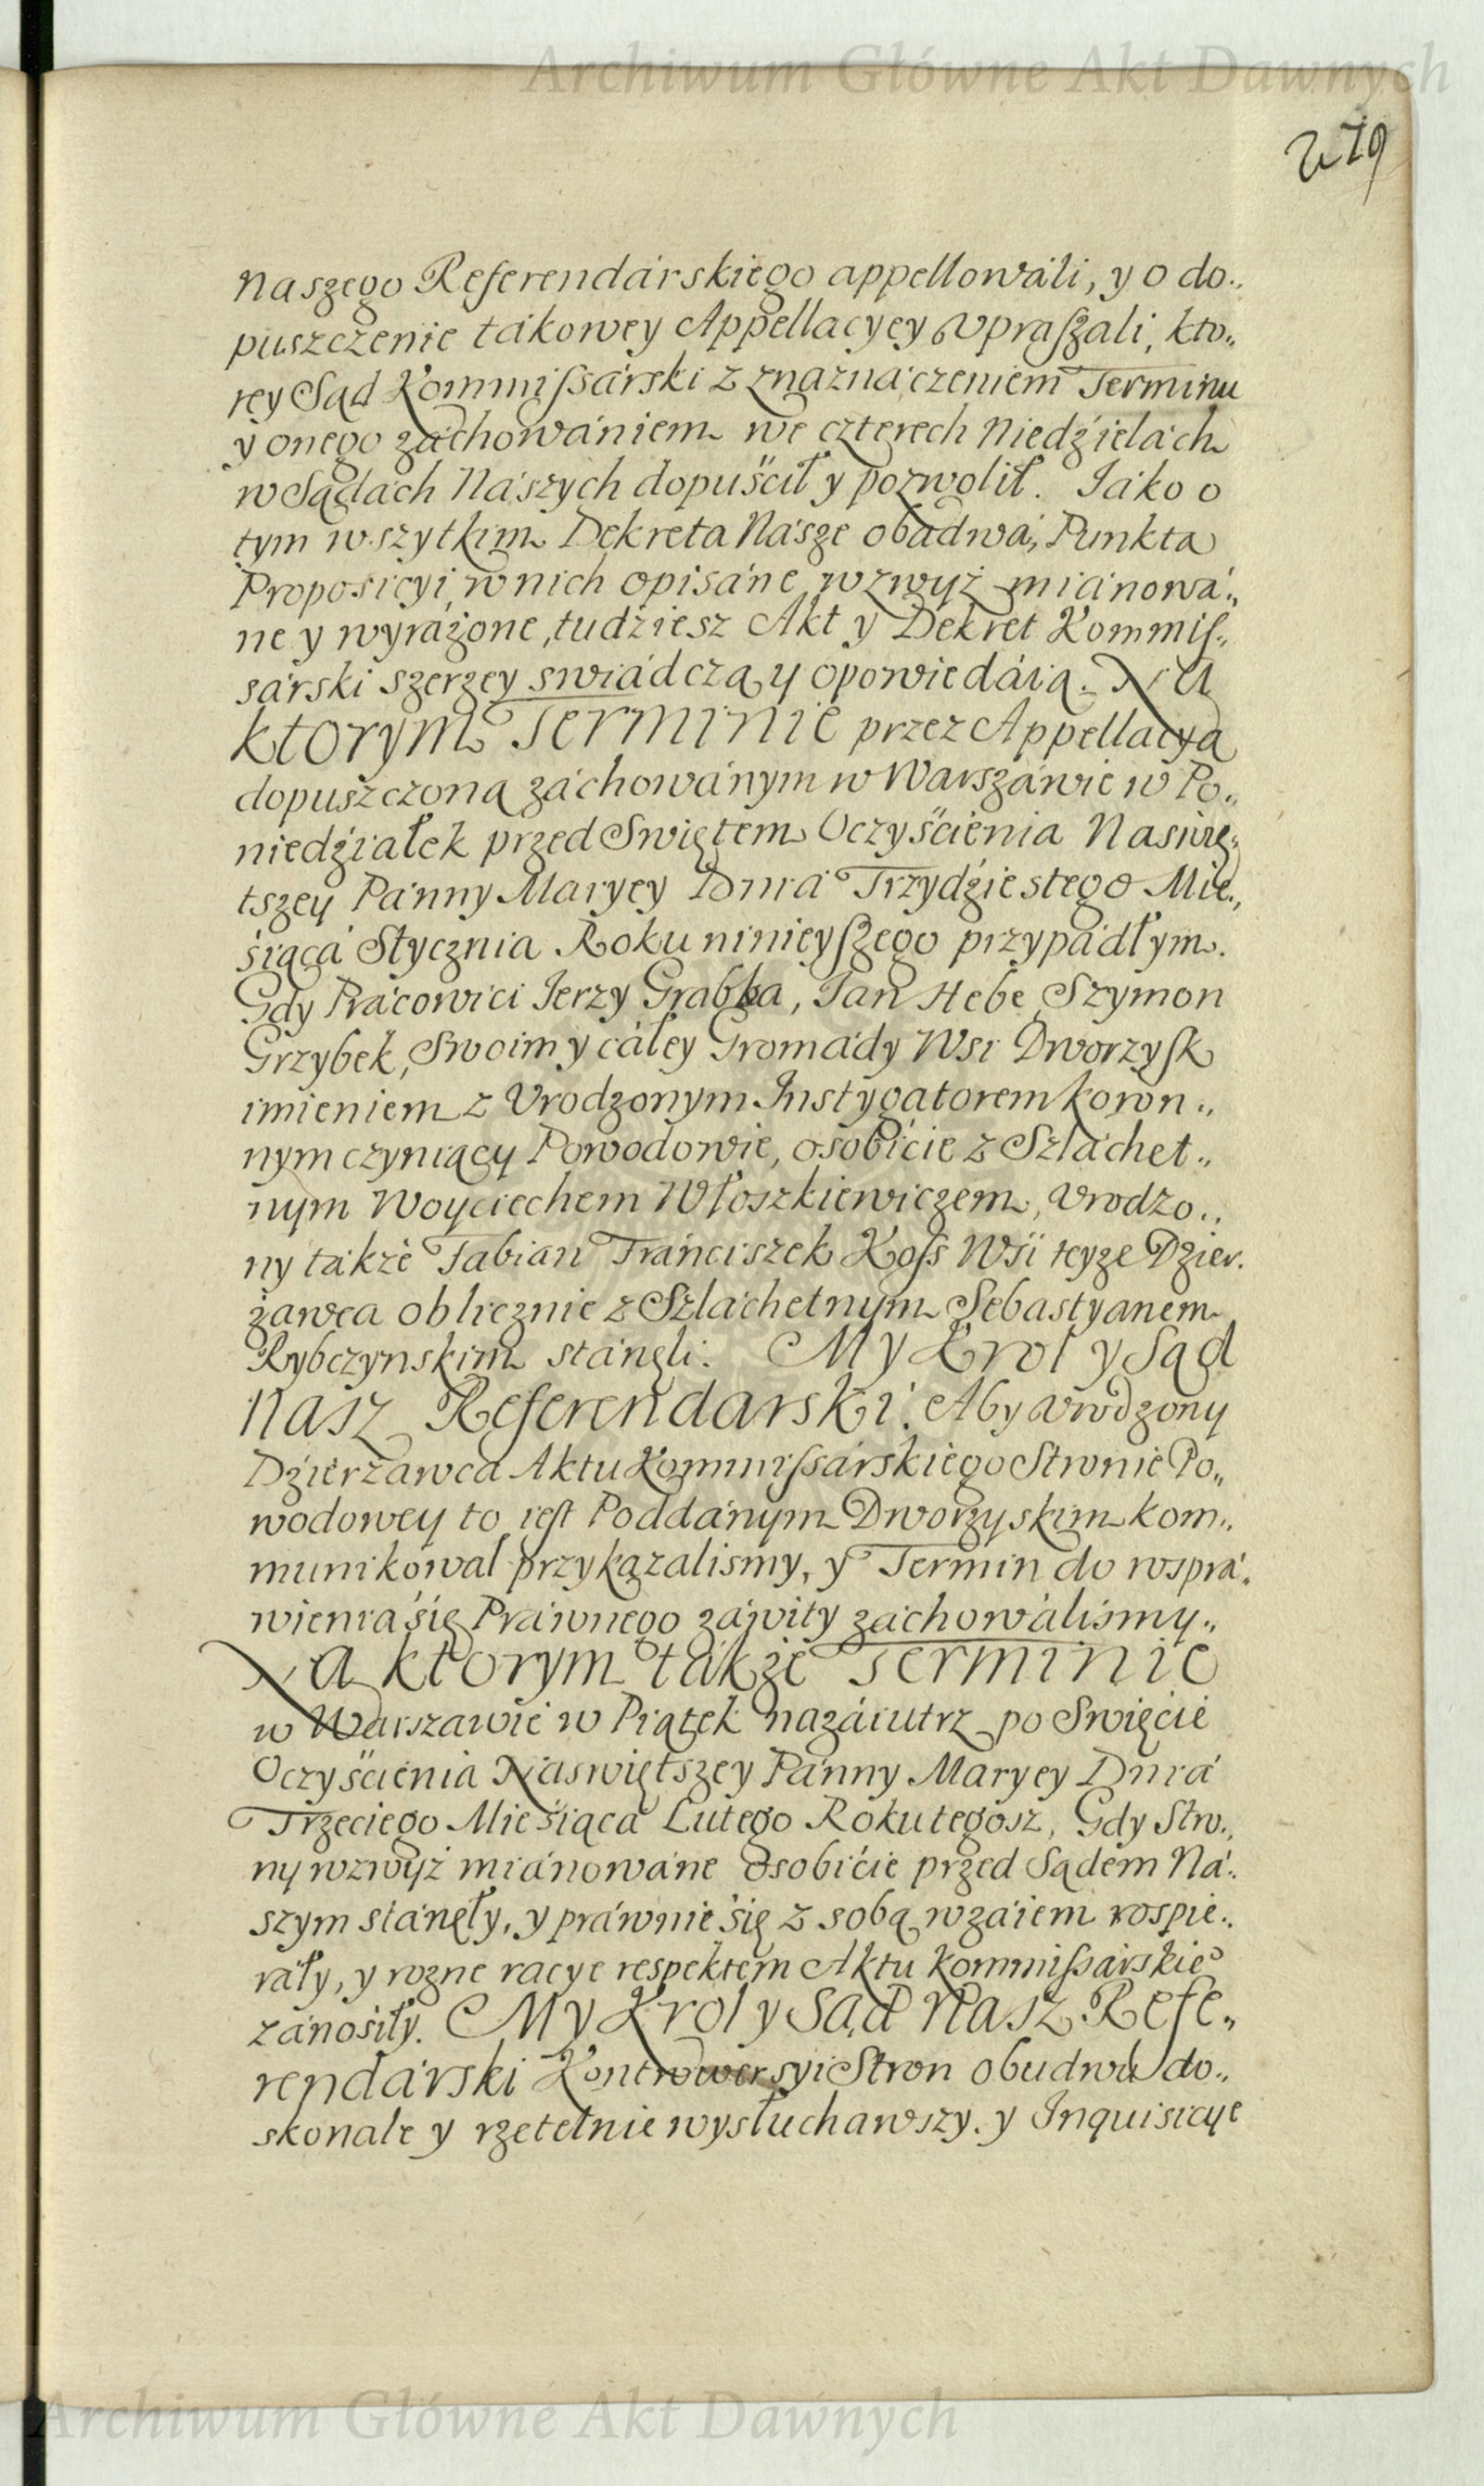 Archiwum Główne Akt Dawnych
279
naszego Referendárskiego appellowáli, y o do„
puszczenie tákowey Appellacyey vpraſzali, kto„
rey Sąd Kommiſsárski z znaznáczeniem Terminu
y onego záchowániem we czterech Niedźielách
w Sądách Nászych dopuśćił y pozwolił. Iáko o
tym wszytkim Dekreta Násze obadwá, Punkta
Proposicyi w nich opisáne wzwyż miánowá„
ne y wyrażone, tudźiesz Akt y Dekret Kommiſ„
sárski szerzey swiádczą y opowiedáią. Na
ktorym Terminie przez Appellacyą
dopuszczoną záchowánym w Warszáwie w Po„
niedźiałek przed Swiętem Oczyśćienia Naswię„
tszey Pánny Maryey Dniá Trzydźiestego Mie„
śiącá Stycznia Roku ninieyſzego przypádłym.
Gdy Prácowici Ierzy Grabka, Ian Hebe, Szymon
Grzybek, Swoim y cáłey Gromády Wsi Dworzyſk
imieniem z Vrodzonym Instygatorem koron„
nym czyniący Powodowie, osobićie z Szláchet„
nym Woyciechem Włoszkiewiczem, Vrodzo„
ny tákże Fabian Fránciszek Koſs Wśi teyże Dzier.
żawca oblicznie z Szláchetnym Sebastyanem
Rybczynskim stánęli. My Krol y Sąd
Nasz Referendarski. Aby Vrodzony
Dźierżawca Aktu Kommiſsárskiego Stronie Po„
wodowey to ieſt Poddánym Dworzyskim kom„
munikował przykazalismy, y Termin do wsprá„
wienia śię Práwnego záwity záchowálismy„
Na ktorym tákże Terminie
w Warszawie w Piątek nazáiutrz po Swięćie
Oczyśćienia Naswiętszey Pánny Maryey Dniá
Trzeciego Mieśiąca Lutego Roku tegosz, Gdy Stro„
ny wzwyż miánowáne osobićie przed Sądem Ná„
szym stánęły, y práwnie śię z sobą wzáiem rospie„
ráły, y rozne racye respektem Aktu kommiſsárskieº
zánośiły. My Krol y Sąd Nasz Refe„
rendárski Kontrowersyi Stron obudwu do„
skonale y rzetelnie wysłuchawszy. y Inquisicye
Archiwum Główne Akt Dawnych